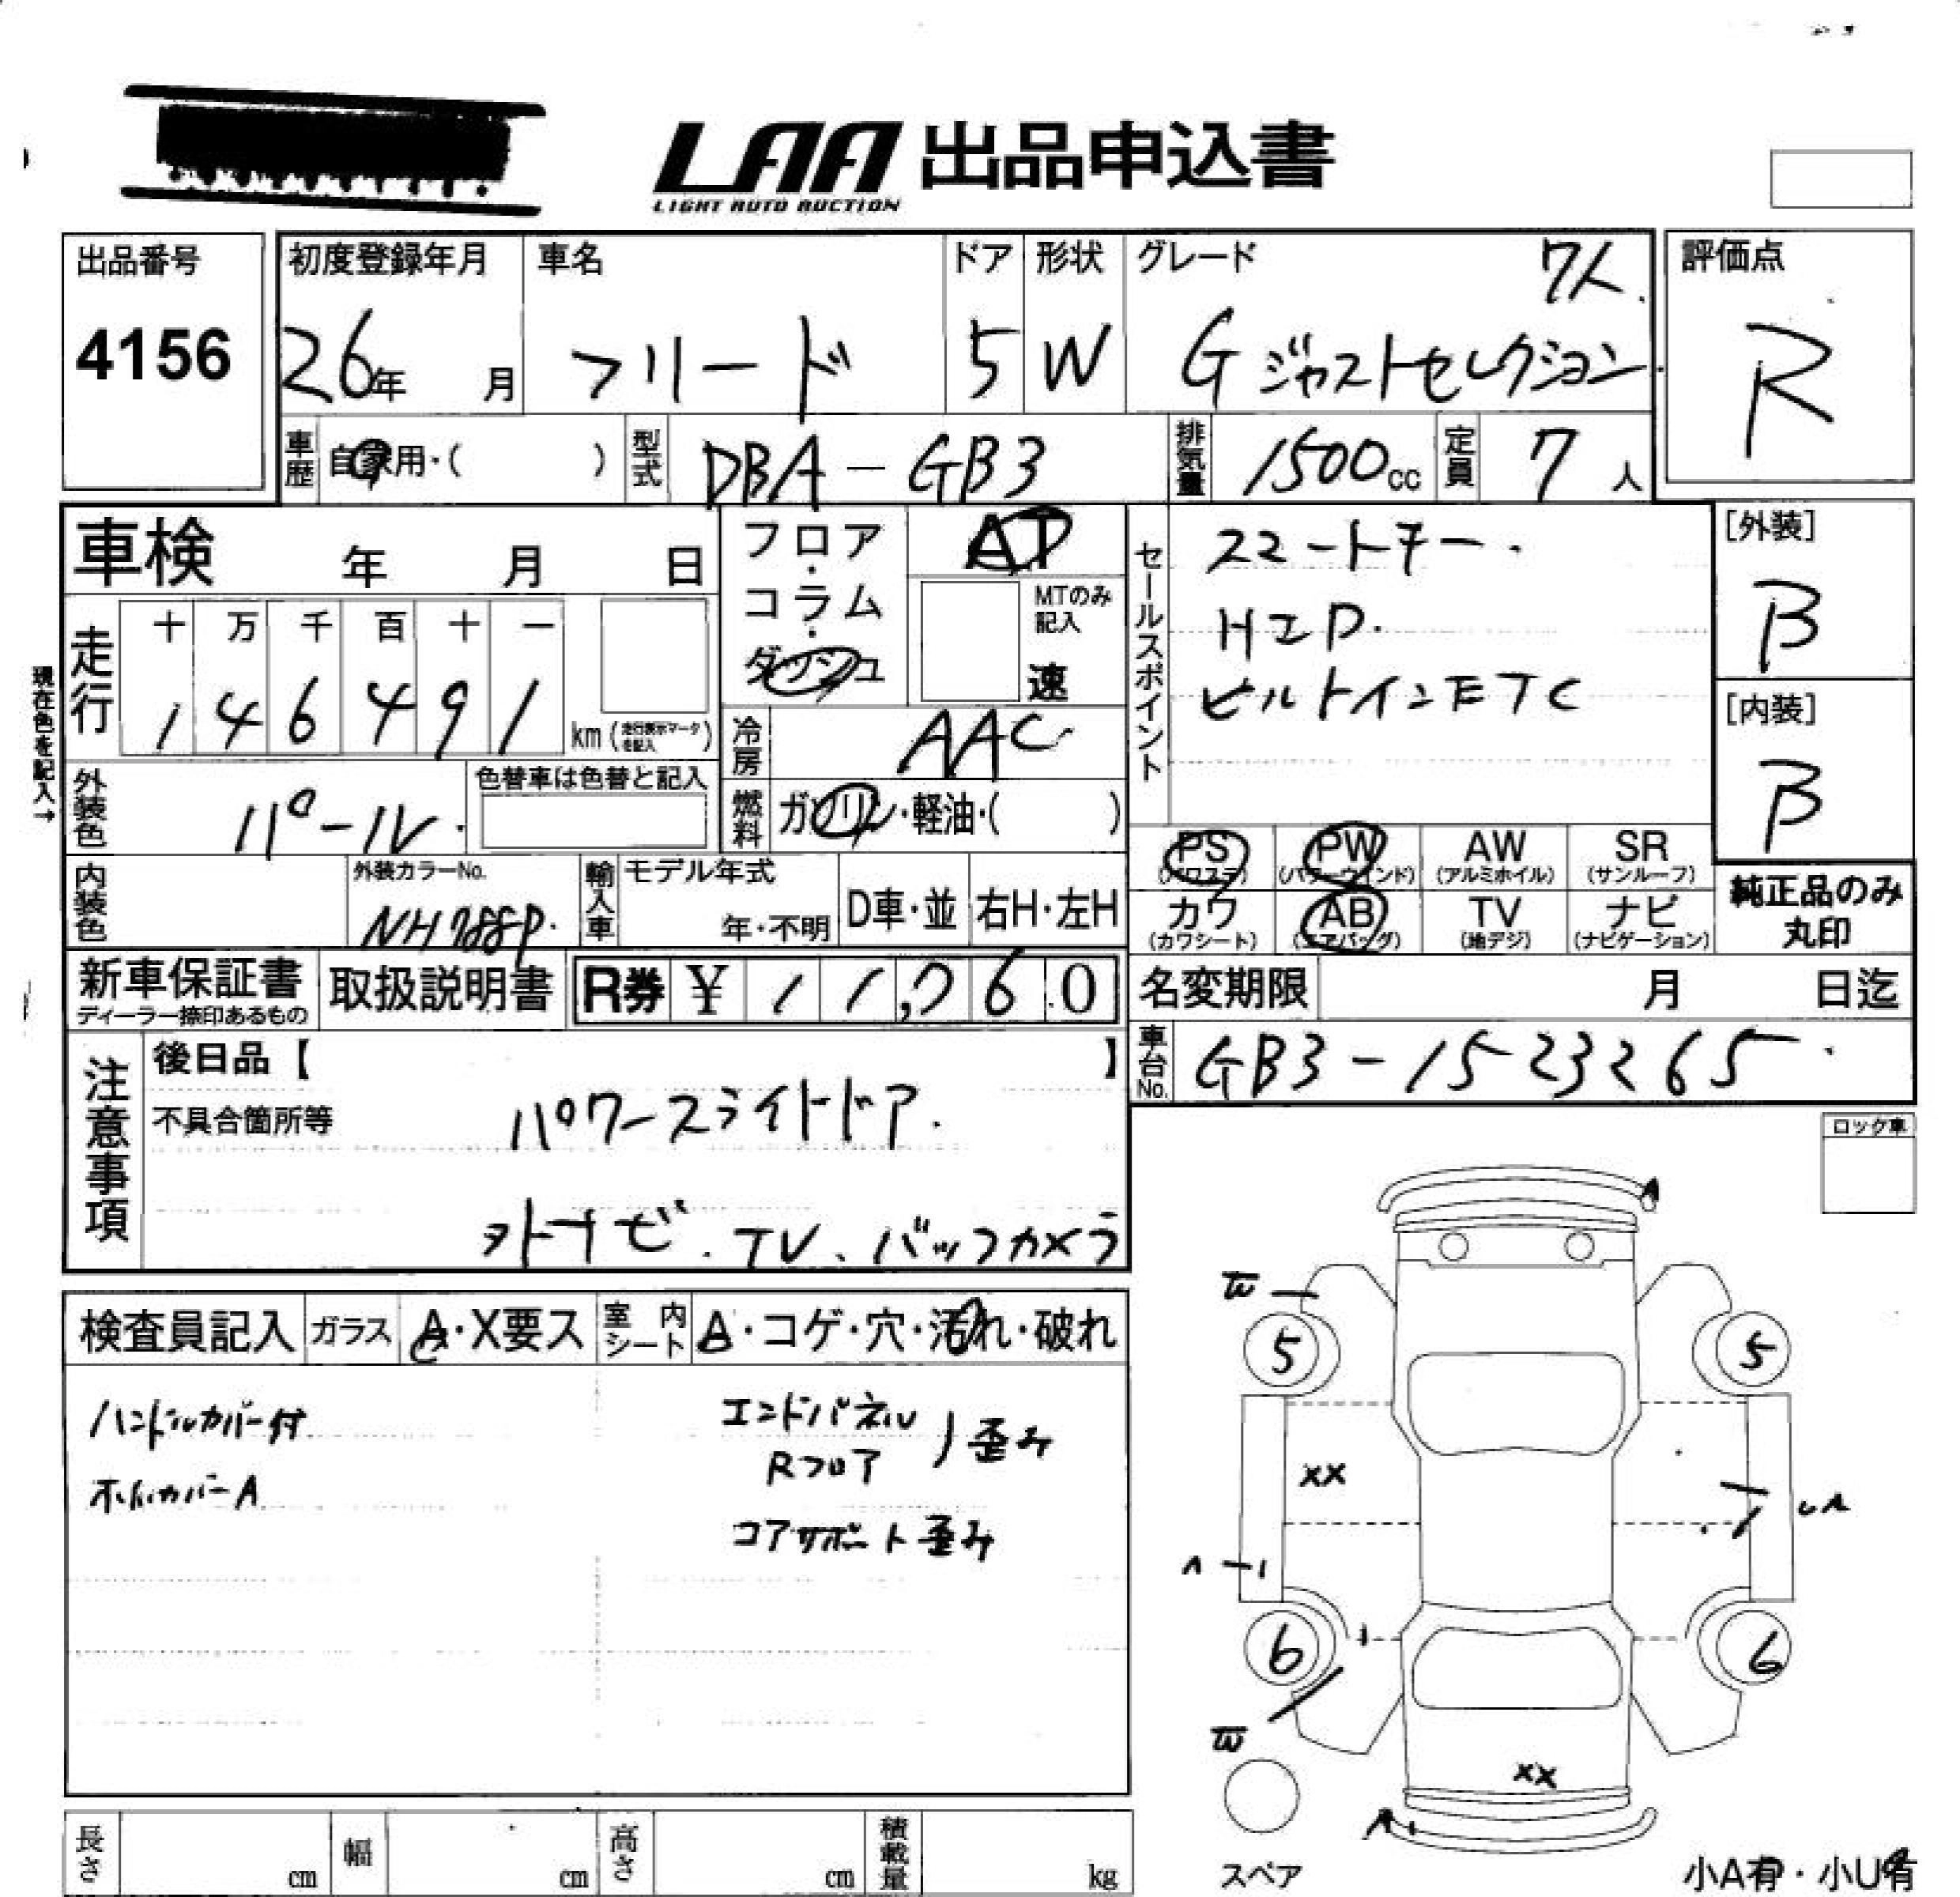 LAA 出品申込書
LIGHT AUTO AUCTION
出品番号
4156
初度登録年月
26年 月
車名
フリード
ドア
5
形状
W
グレード
7人.
G ジャストセレクション
評価点
R
車歴 自家用・( )
型式 DBA-GB3
排気量 1500cc
定員 7人
車検 年 月 日
現在色を記入→
走行
十 万 千 百 十 一
1 4 6 4 9 1
km(走行表示マークを記入)
フロア・コラム・ダッシュ
AT
MTのみ記入
速
冷房 AAC
燃料 ガソリン・軽油・( )
外装色 パール.
色替車は色替と記入
内装色
外装カラーNo.
NH788P.
輸入車
モデル年式
年・不明
D車・並
右H・左H
セールスポイント
スマートキー.
HID.
ビルトインETC
[外装]
B
[内装]
B
PS (パワステ)
PW (パワーウインド)
AW (アルミホイル)
SR (サンルーフ)
カワ (カワシート)
AB (エアバッグ)
TV (地デジ)
ナビ (ナビゲーション)
純正品のみ丸印
新車保証書
ディーラー捺印あるもの
取扱説明書
R券 ¥ 11,760
名変期限 月 日迄
車台No. GB3-1523265
注意事項
後日品【 】
不具合箇所等
パワースライドドア.
外ナビ. TV、バックカメラ
ロック車
検査員記入
ガラス A・X要ス
室内シート A・コゲ・穴・汚れ・破れ
ハンドルカバー付
ホイルカバーA
エンドパネル
Rフロア
歪み
コアサポート歪み
A
W
5
5
XX
UA
A
6
6
W
XX
A
スペア
小A有・小U有
長さ cm
幅 cm
高さ cm
積載量 kg